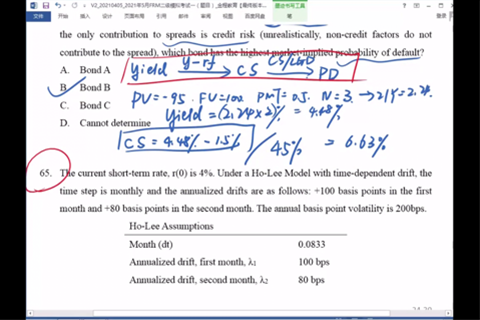 V2_20210405_2021年5月FRM二级模拟考试一
文件 开始 插入 设计 页面布局 引用 邮件 审阅 视图
the only contribution to spreads is credit risk (unrealistically, non-credit factors do not
contribute to the spread), which bond has the highest market-implied probability of default?
A. Bond A
B. Bond B
C. Bond C
D. Cannot determine
Yield y-rf CS CS/LGD PD
PV=-95. FV=100. PMT=0.5. N=3. → I/Y=2.24.
Yield=(2.24×2)%=4.48%
CS=4.48%-1.5% / 45% = 6.63%
65. The current short-term rate, r(0) is 4%. Under a Ho-Lee Model with time-dependent drift, the
time step is monthly and the annualized drifts are as follows: +100 basis points in the first
month and +80 basis points in the second month. The annual basis point volatility is 200bps.
Ho-Lee Assumptions
Month (dt) 0.0833
Annualized drift, first month, λ1 100 bps
Annualized drift, second month, λ2 80 bps